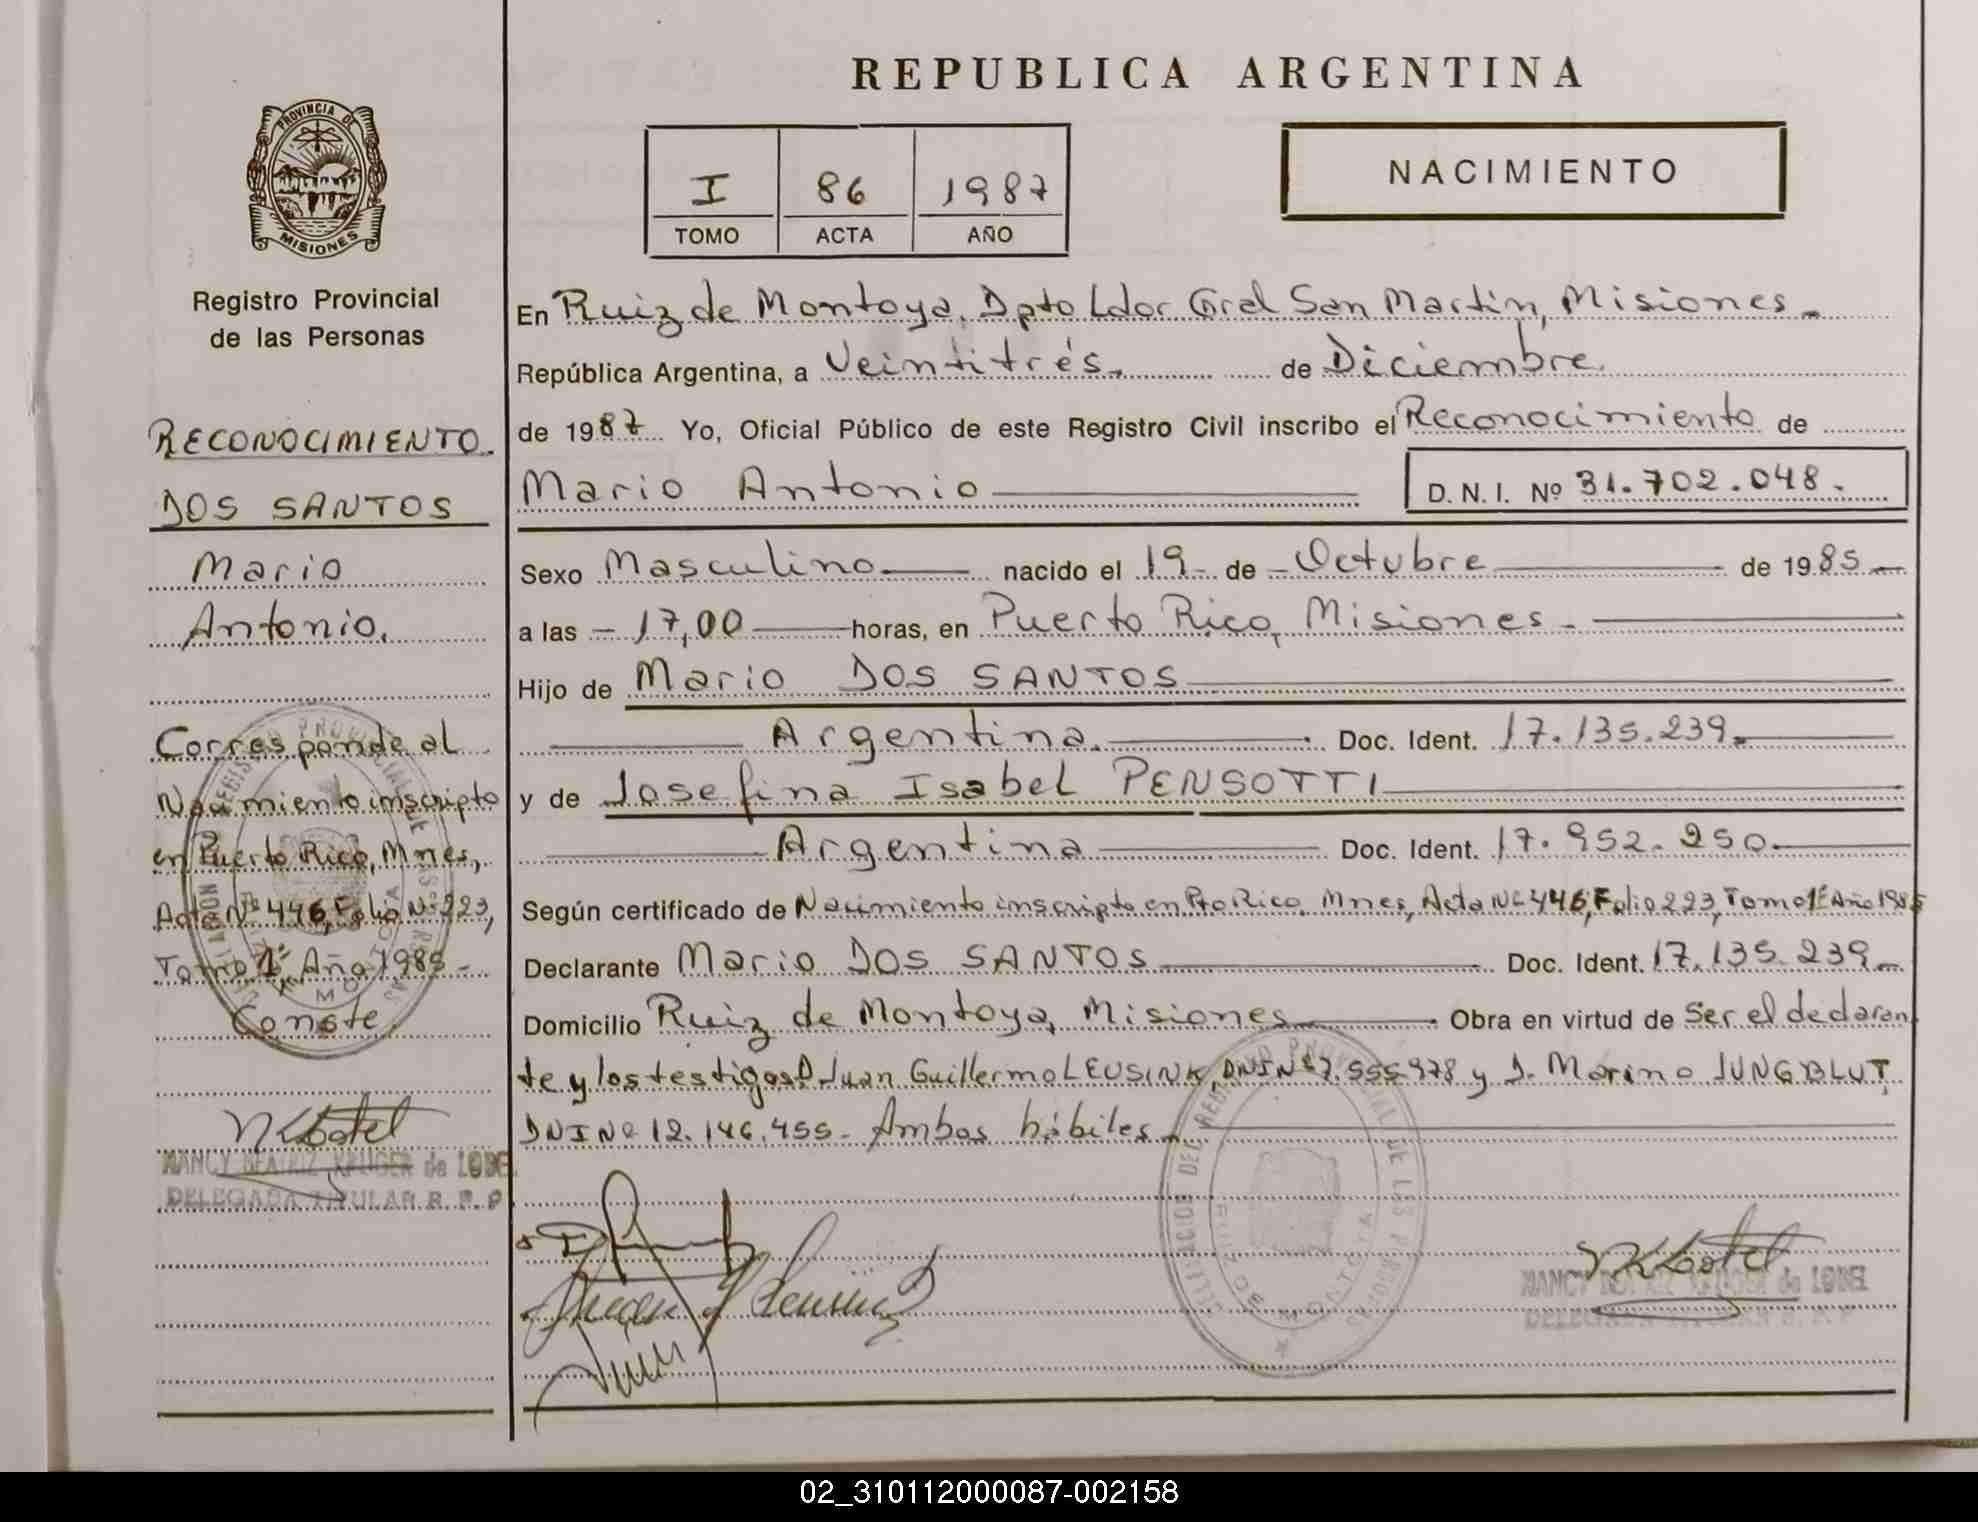 REPUBLICA ARGENTINA
PROVINCIA DE
MISIONES
Registro Provincial
de las Personas
I 86 1987
TOMO ACTA AÑO
NACIMIENTO
RECONOCIMIENTO.
DOS SANTOS
Mario
Antonio.
Corresponde al
Nacimiento inscripto
en Puerto Rico, Mnes,
Acta Nº 446, Folio Nº 223,
Tomo 1º, Año 1985-
Conste.
NANCY BEATRIZ KRUGER de LOBE
DELEGADA TITULAR R. P. P
En Ruiz de Montoya, Dpto Ldor Gral San Martín, Misiones.
República Argentina, a Veintitrés. de Diciembre.
de 1987. Yo, Oficial Público de este Registro Civil inscribo el Reconocimiento de
Mario Antonio D. N. I. Nº 31.702.048.
Sexo Masculino. nacido el 19 de Octubre de 1985
a las 17,00 horas, en Puerto Rico, Misiones.
Hijo de Mario DOS SANTOS
Argentina. Doc. Ident. 17.135.239.
y de Josefina Isabel PENSOTTI
Argentina Doc. Ident. 17.952.250.
Según certificado de Nacimiento inscripto en Pto Rico, Mnes, Acta Nº 446, Folio 223, Tomo 1º Año 1985
Declarante Mario DOS SANTOS Doc. Ident. 17.135.239.
Domicilio Ruiz de Montoya, Misiones Obra en virtud de Ser el declaran
te y los testigos D. Juan Guillermo LEUSINK, DNI Nº 7.555.978 y D. Marino JUNGBLUT,
DNI Nº 12.146.455. Ambos hábiles.
DELEGACION DEL REGISTRO PROVINCIAL DE LAS PERSONAS
RUIZ DE MONTOYA
NANCY BEATRIZ KRUGER de LOBE
DELEGADA TITULAR R. P. P
02_310112000087-002158